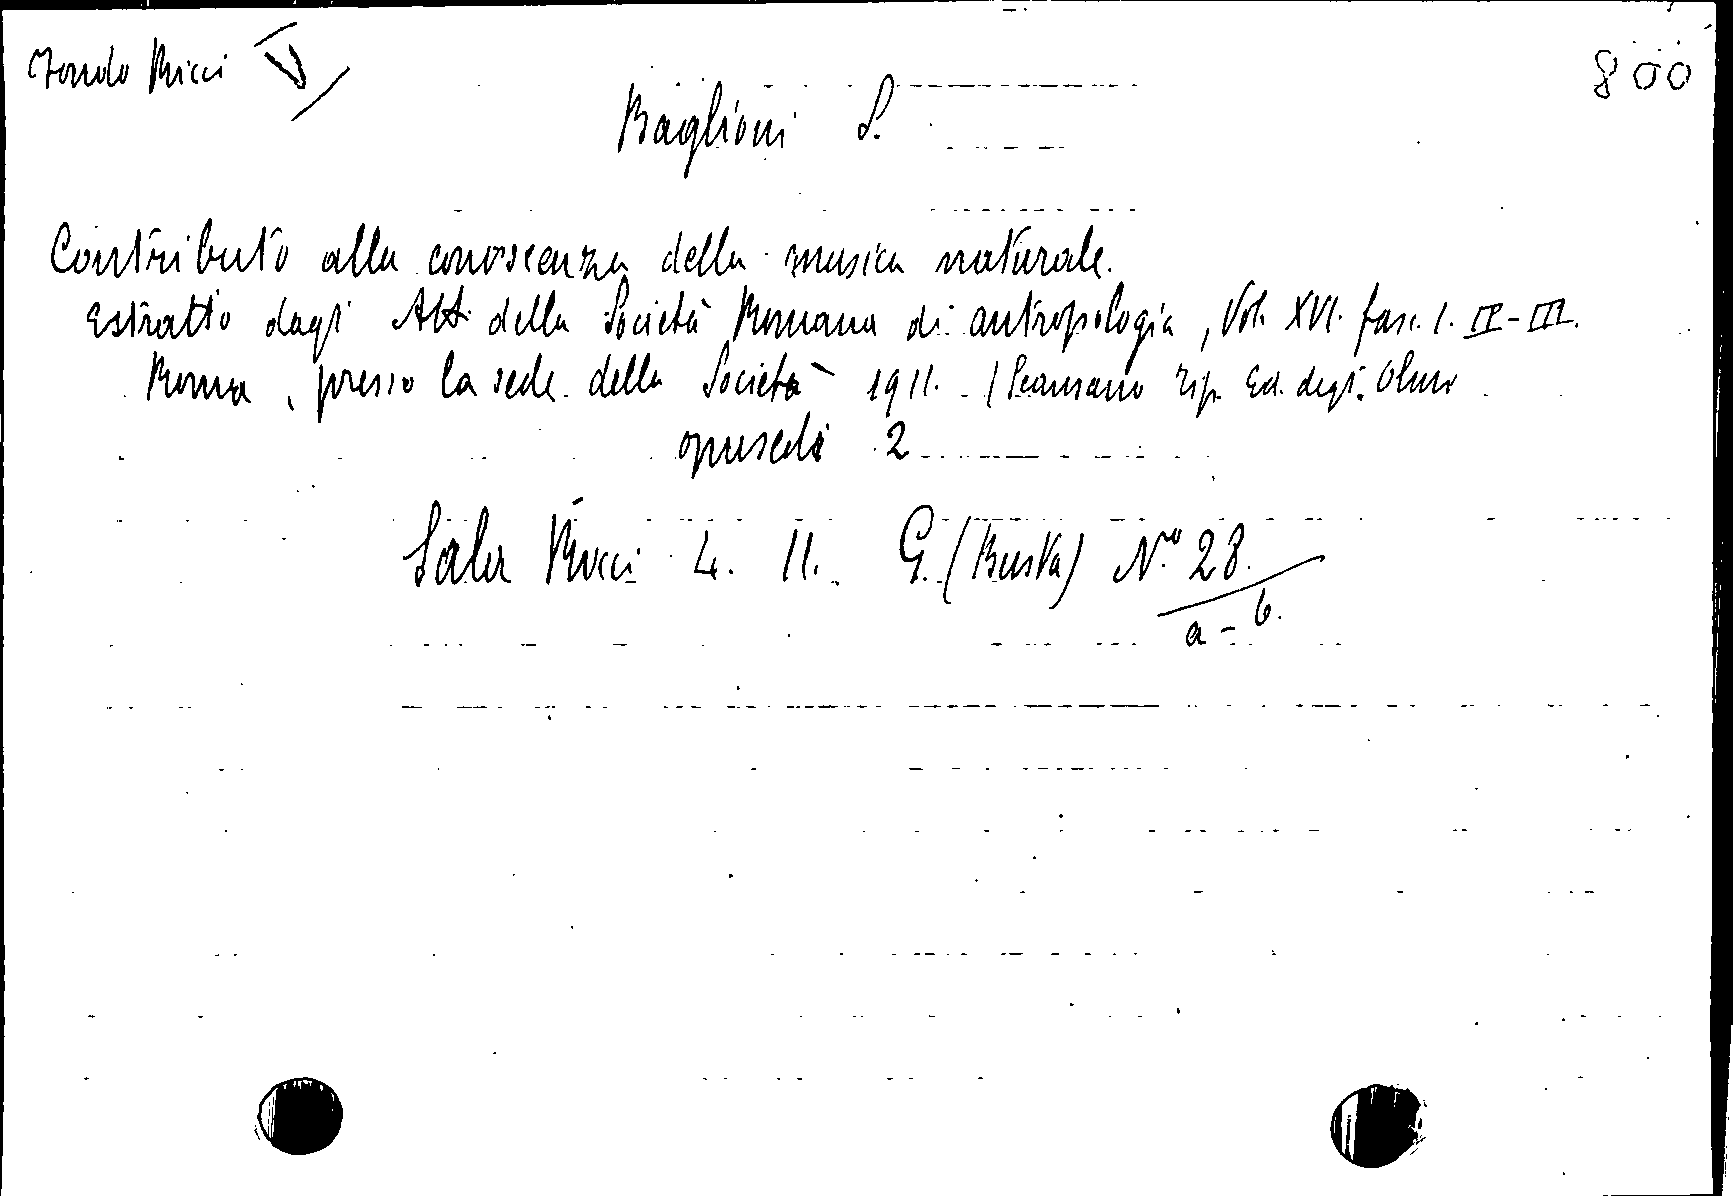 Fondo Ricci V
800
Baglioni S.
Contributo alla conoscenza della musica naturale.
Estratto dagli Atti della Società Romana di antropologia, Vol. XVI. fasc. I. II-III.
Roma, presso la sede della Società 1911. (Scansano Tip. Ed. degli Olmi
opuscoli 2
Sala Ricci 4. 11. G. (Busta) N.º 28.
a - b.